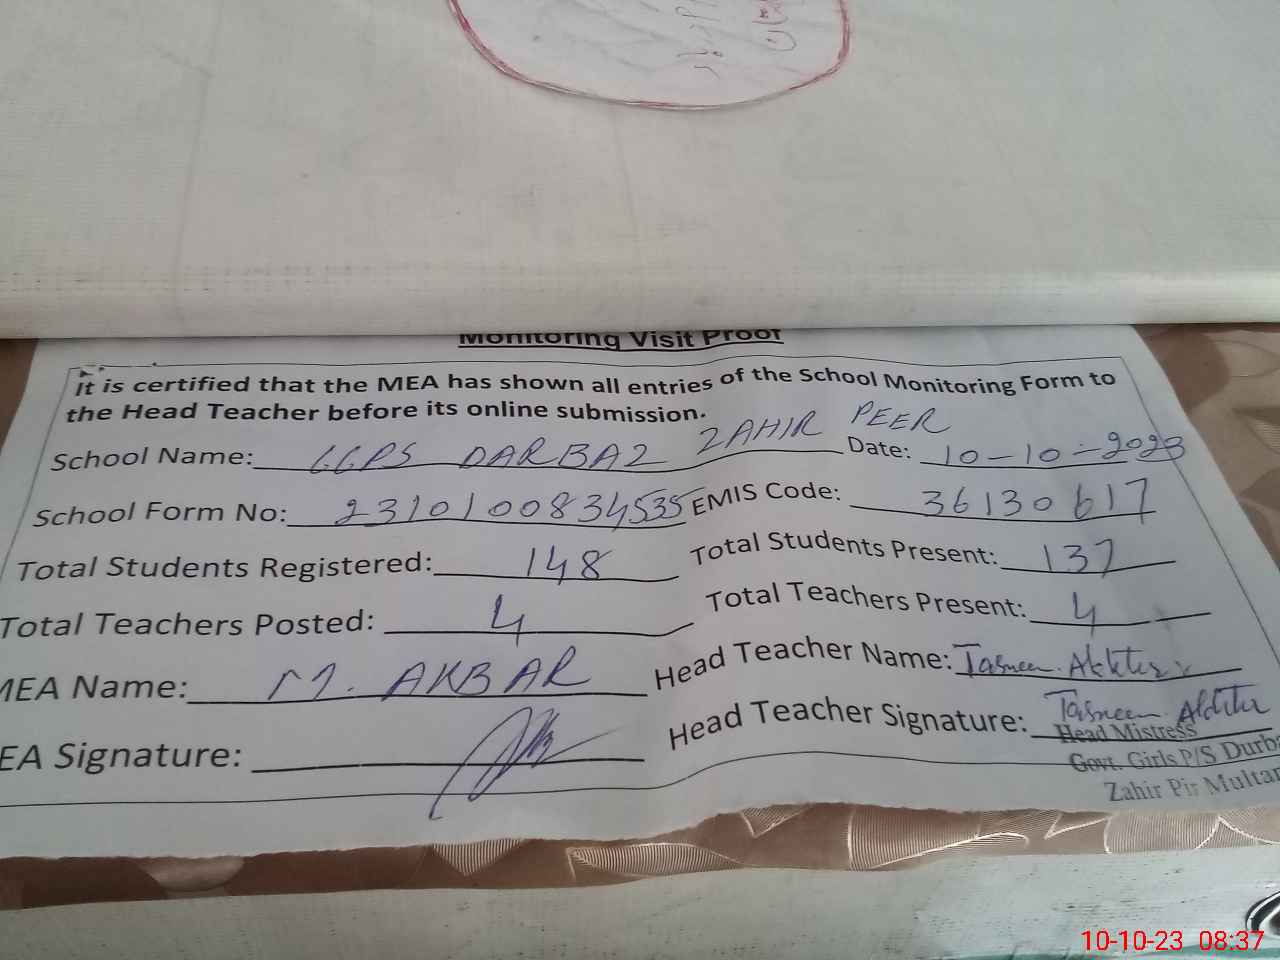 Monitoring Visit Proof
It is certified that the MEA has shown all entries of the School Monitoring Form to
the Head Teacher before its online submission.
School Name: GGPS DARBAZ ZAHIR PEER Date: 10-10-2023
School Form No: 2310100834535 EMIS Code: 36130617
Total Students Registered: 148 Total Students Present: 137
Total Teachers Posted: 4 Total Teachers Present: 4
MEA Name: M. AKBAR Head Teacher Name: Tasneem Akhter
EA Signature: Head Teacher Signature: Tasneem Akhter
Head Mistress
Govt. Girls P/S Durba
Zahir Pir Multan
10-10-23 08:37